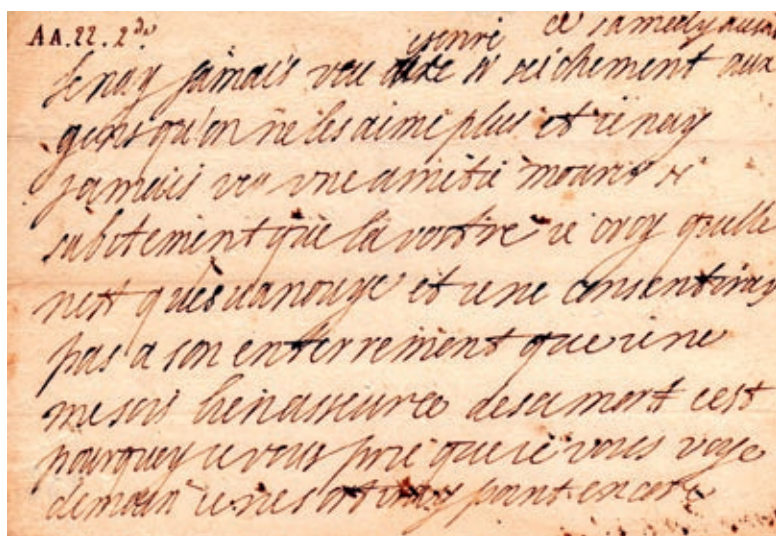 AA.22.2de
ce samedy au soir
escrire
Je nay jamais veu si seichement aux
gens qu'on ne les aime plus et ie nay
jamais veu vne amitié mourir si
subitement que la vostre ie croy qu'elle
nest qu'esuanouye et ie ne consentiray
pas a son enterrement que ie ne
me sois bien asseuree de sa mort cest
pourquoy ie vous prie que ie vous voye
demain ie ne sortiray point encore